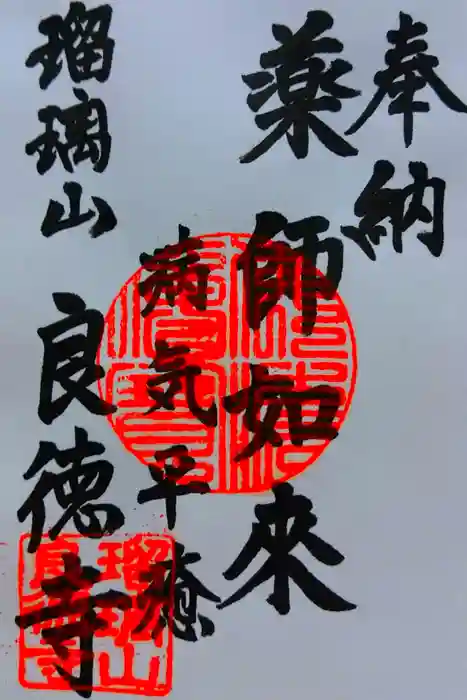 奉納
薬師如来
病気平癒
瑠璃山
良徳寺
瑠璃山
良徳寺